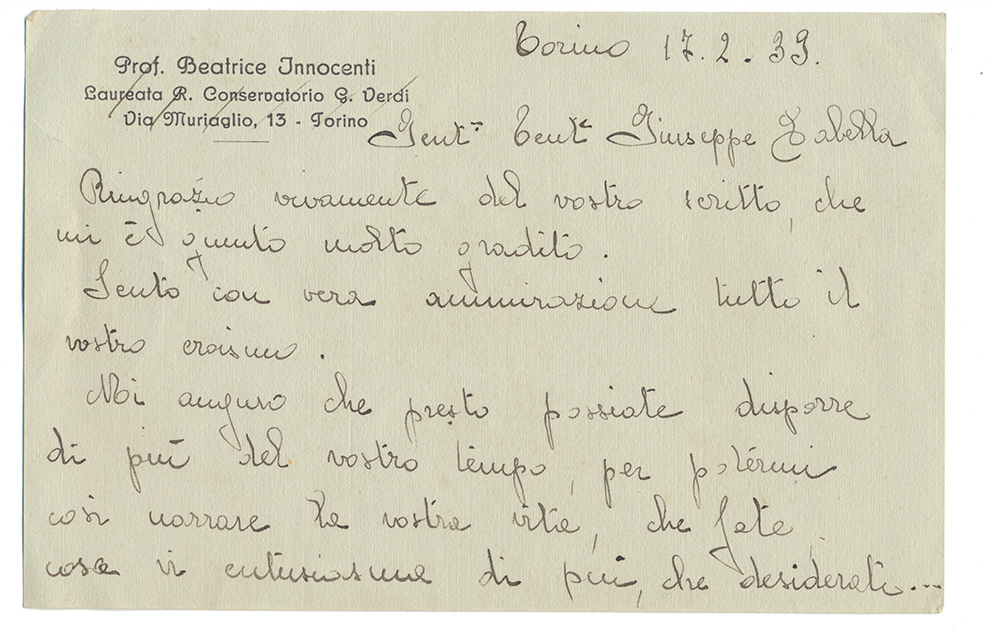 Torino 17.2.39.
Prof. Beatrice Innocenti
Laureata R. Conservatorio G. Verdi
Via Muriaglio, 13 - Torino
Gent.ᵐᵒ Tent.ᵉ Giuseppe
Ringrazio vivamente del vostro scritto, che
mi è giunto molto gradito.
Sento con vera ammirazione tutto il
vostro eroismo.
Mi auguro che presto possiate disporre
di più del vostro tempo, per potérmi
così narrare la vostra vita, che fate,
cosa vi entusiasma di più, che desiderate...